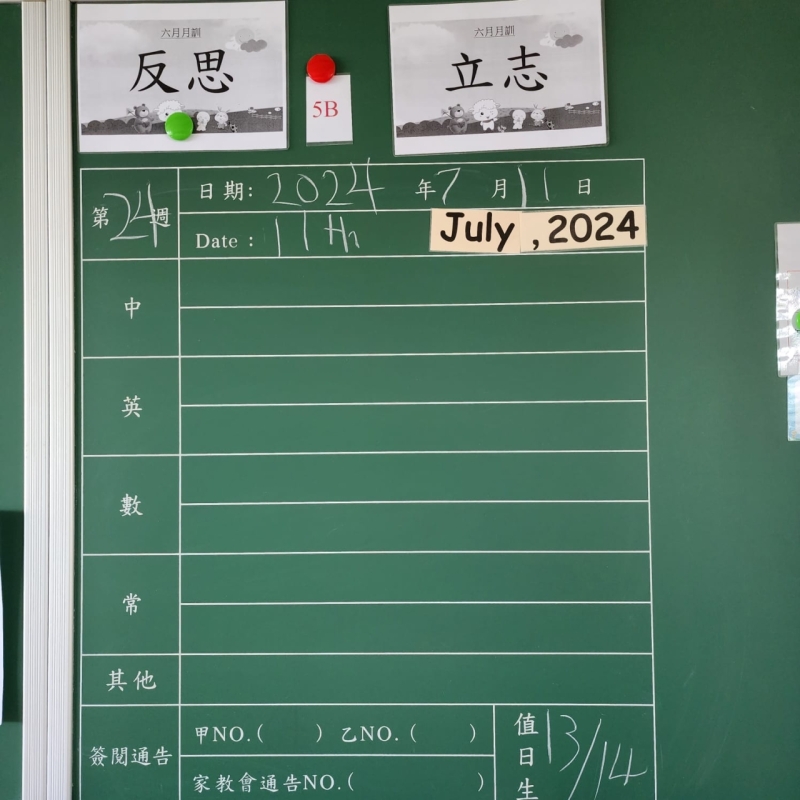 六月月訓
反思
5B
六月月訓
立志
第24週
日期: 2024 年7 月11 日
Date : 11th July , 2024
中
英
數
常
其他
簽閱通告
甲NO.( ) 乙NO. ( )
家教會通告NO.( )
值日生 13/14